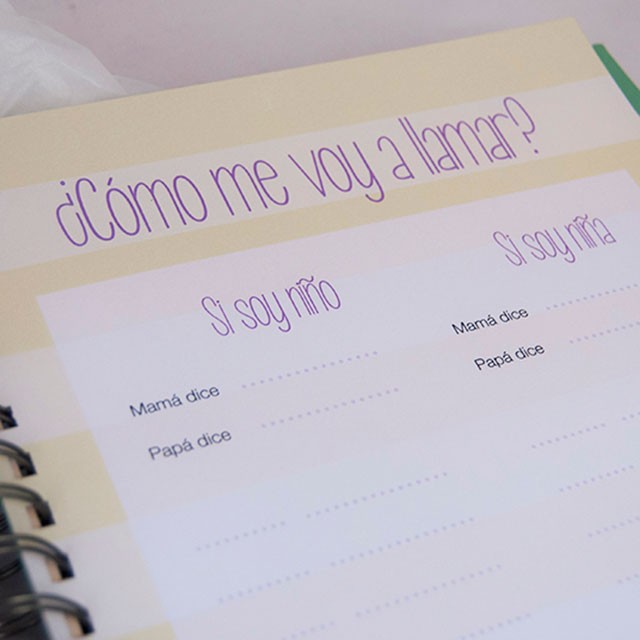 ¿Cómo me voy a llamar?
Si soy niño
Mamá dice
Papá dice
Si soy niña
Mamá dice
Papá dice